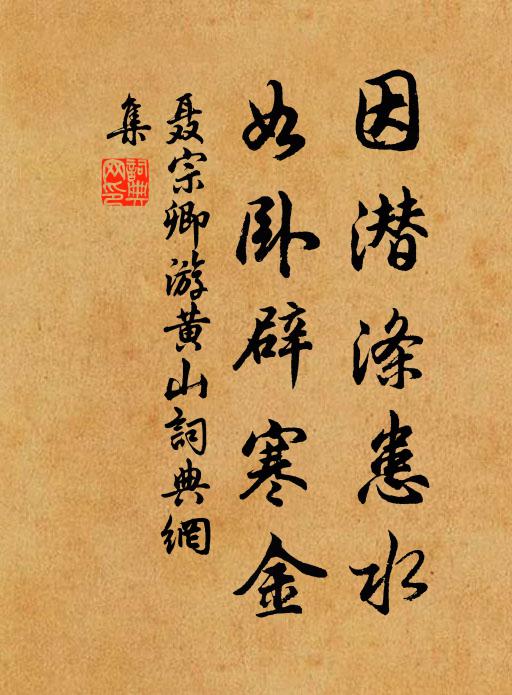 因潜涤患水
如卧辟寒金
聂宗卿游黄山詞典網
集
詞典網印